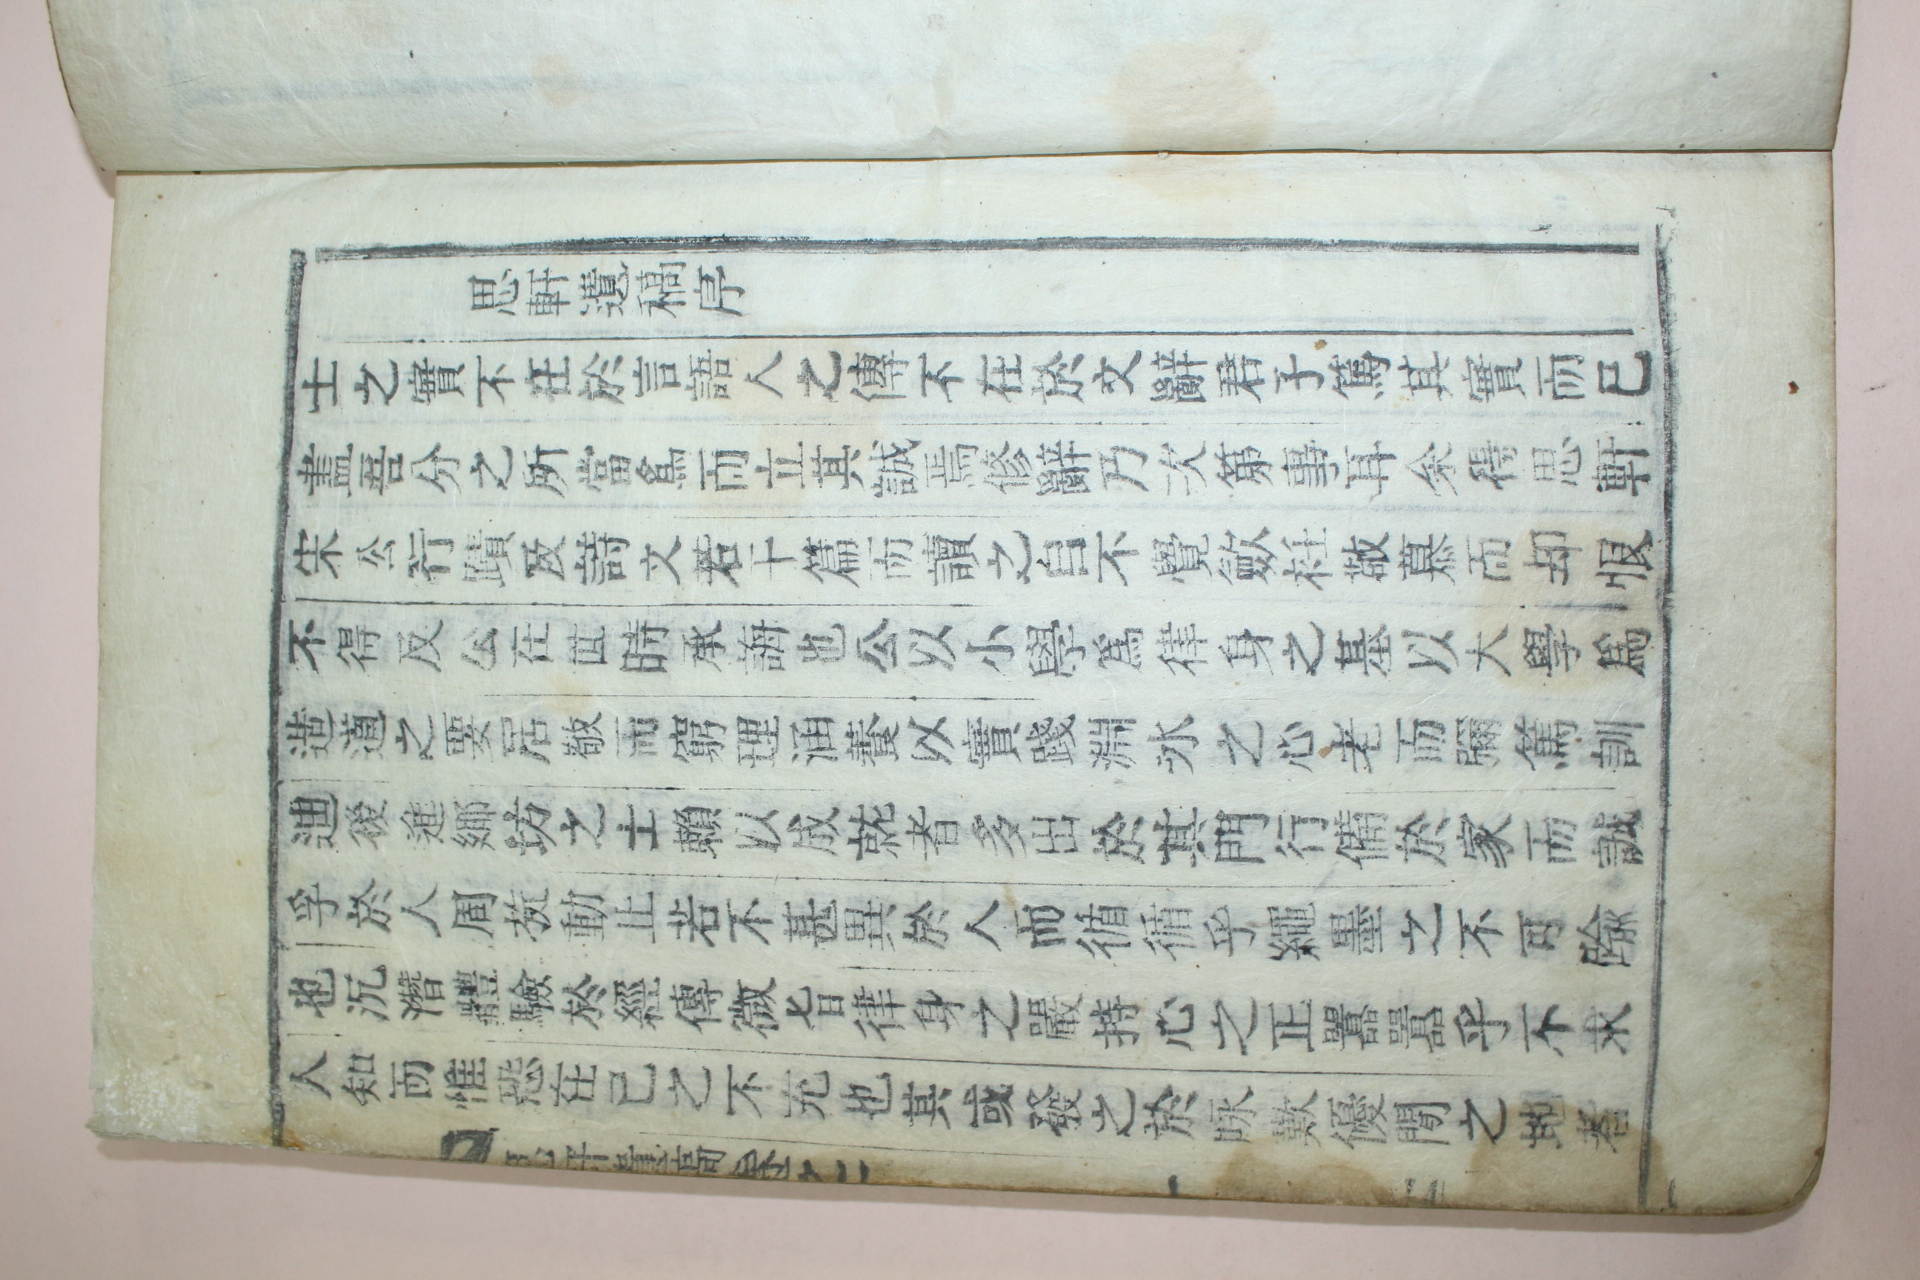 思軒遺稿序
士之實不在於言語人之傳不在於文辭君子篤其實而已
盡吾分之所當爲而立其誠焉修辭乃次第事耳余得思軒
宋公行蹟及詩文若干篇而讀之自不覺斂衽敬慕而却恨
不得及公在世時承誨也公以小學爲律身之基以大學爲
造道之要居敬而窮理涵養以實踐淵氷之心老而彌篤訓
迪後進鄕坊之士賴以成就者多出於其門行備於家而誠
孚於人周旋動止若不甚異於人而循循乎繩墨之不可踰
也沉潛軆驗於經傳微旨律身之嚴持心之正囂囂乎不求
人知而惟恐在己之不充也其或發之於咏歎優閒之地者